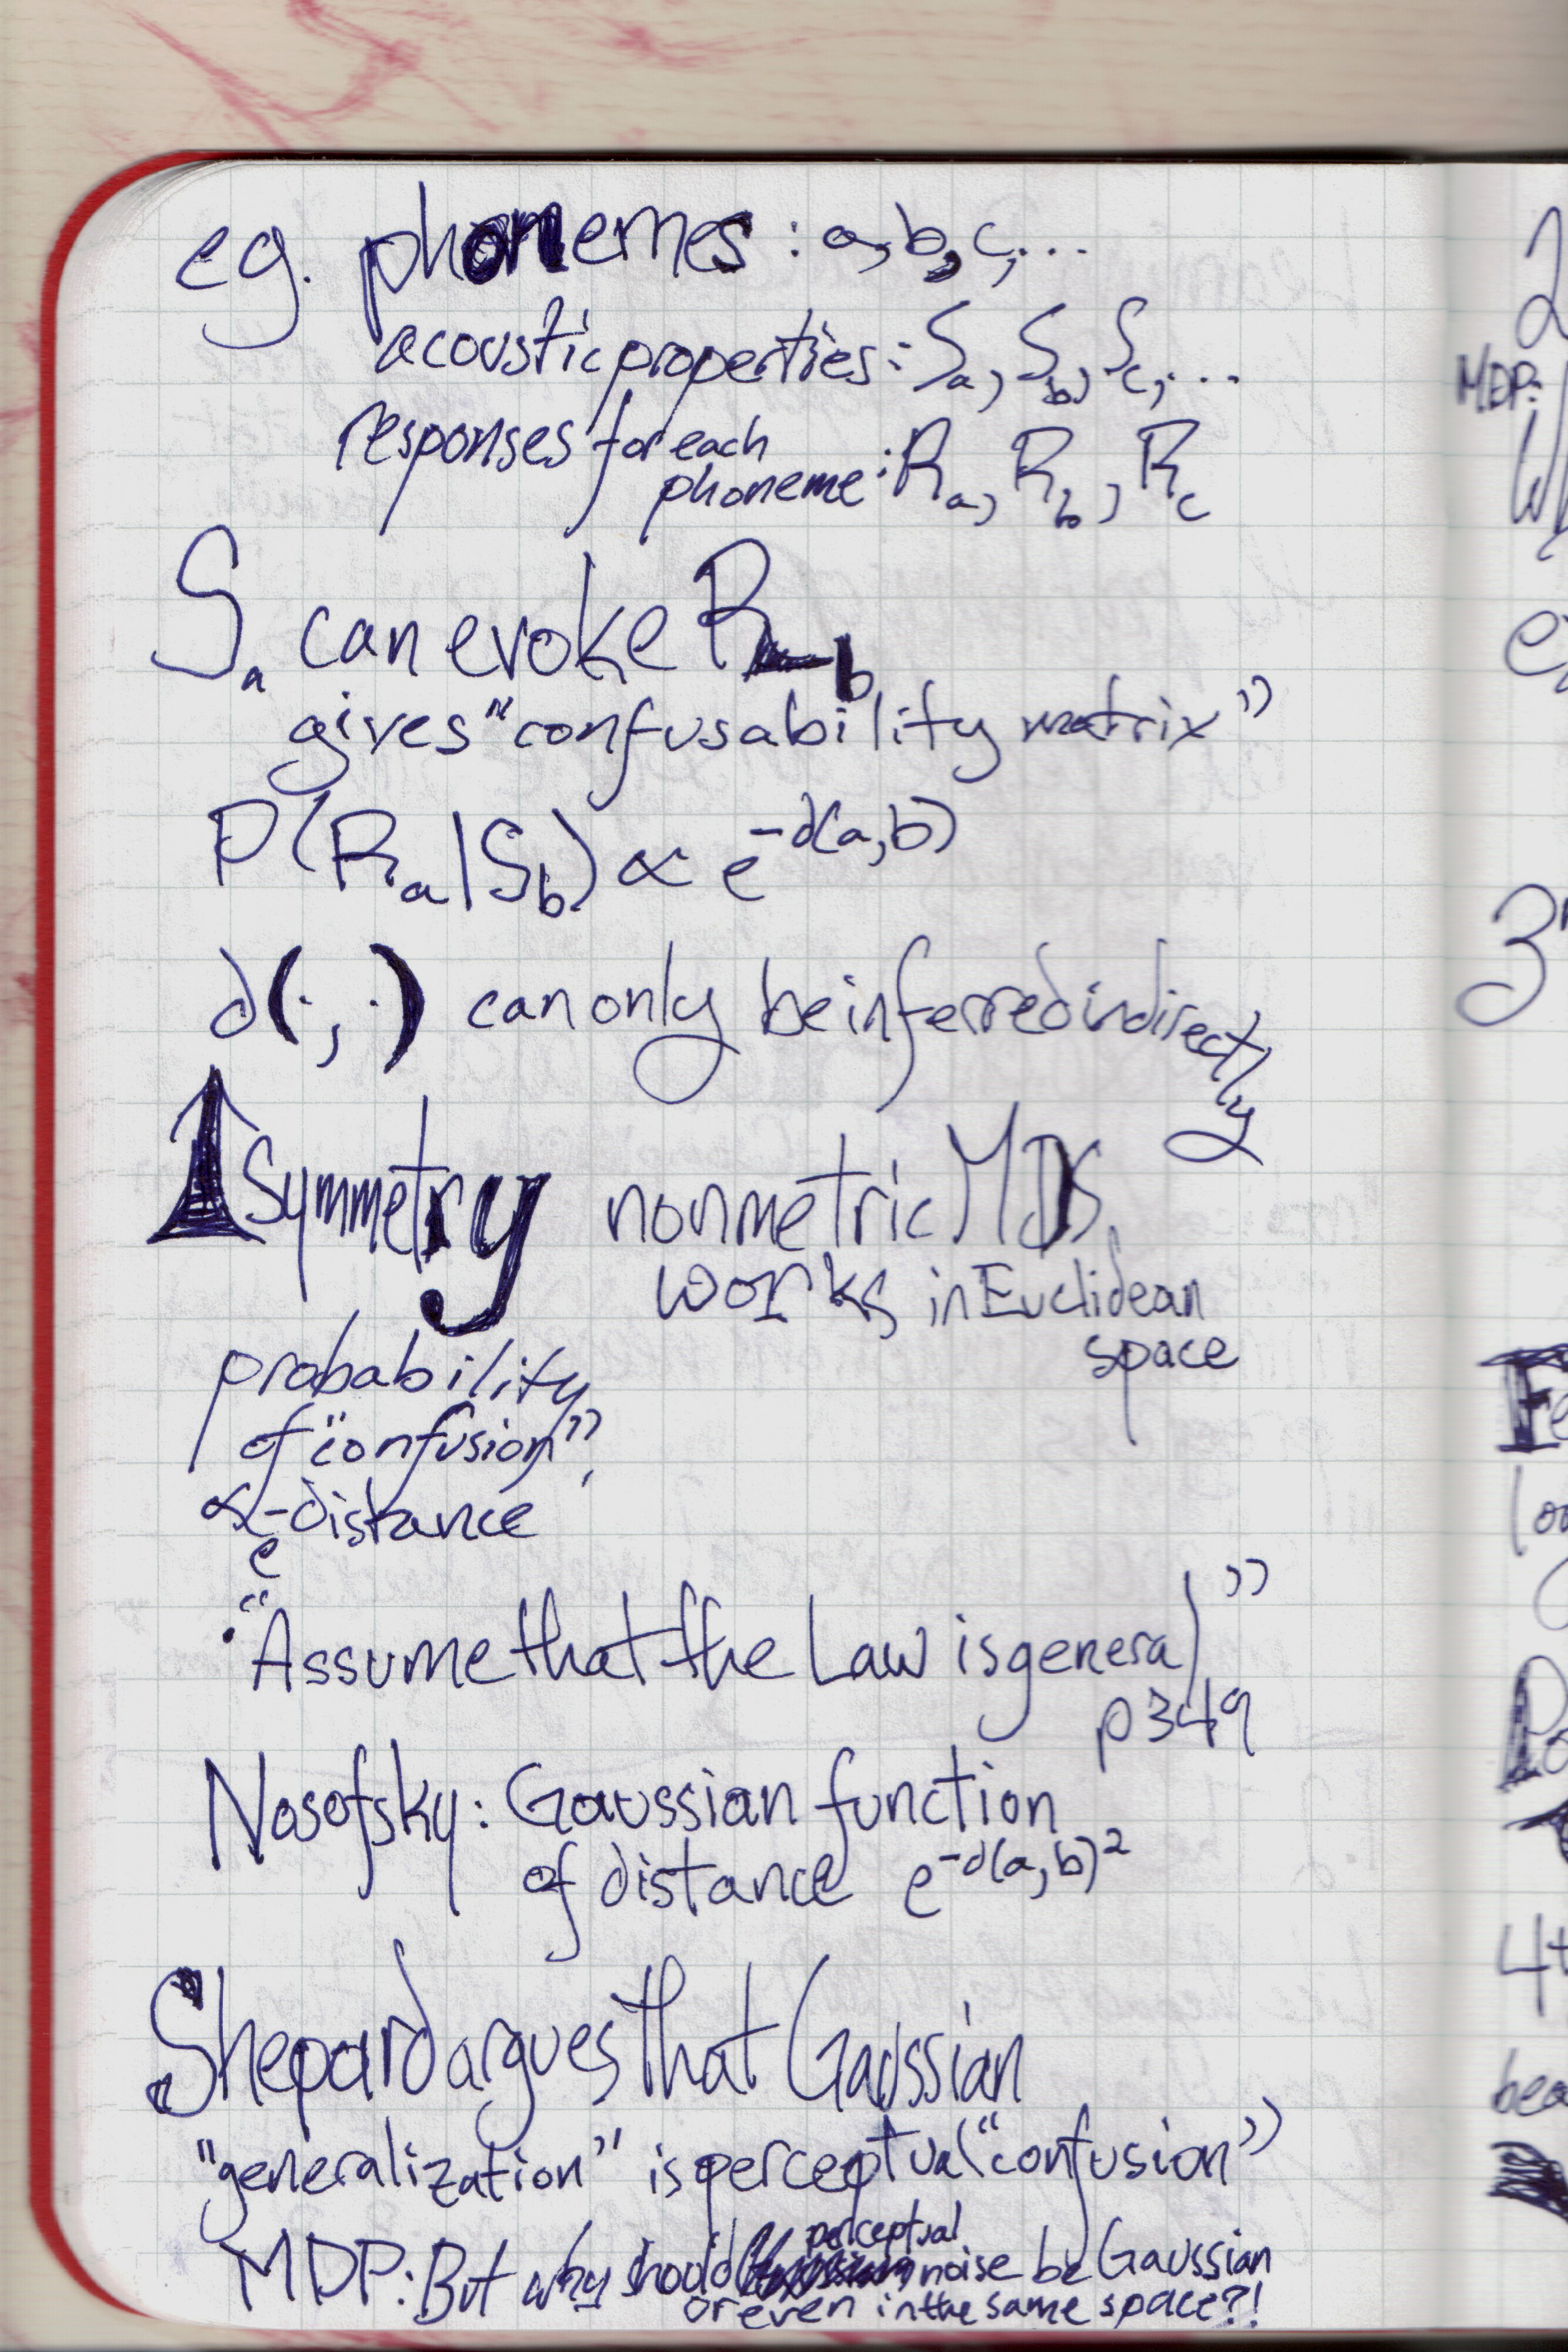 eg. phonemes : a, b, c, ...
acoustic properties: Sa, Sb, Sc, ...
responses for each
phoneme: Ra, Rb, Rc
Sa can evoke Rb
gives "confusability matrix"
P(Ra|Sb) ∝ e^-d(a,b)
d(·,·) can only be inferred indirectly
↑ symmetry nonmetric MDS
works in Euclidean
space
probability
of "confusion"
∝ e^-distance
· "Assume that the Law is general"
p349
Nosofsky: Gaussian function
of distance e^-d(a,b)²
Shepard argues that Gaussian
"generalization" is perceptual "confusion"
MDP: But why should perceptual noise be Gaussian
or even in the same space?!
2
MDP:
3
4
bea